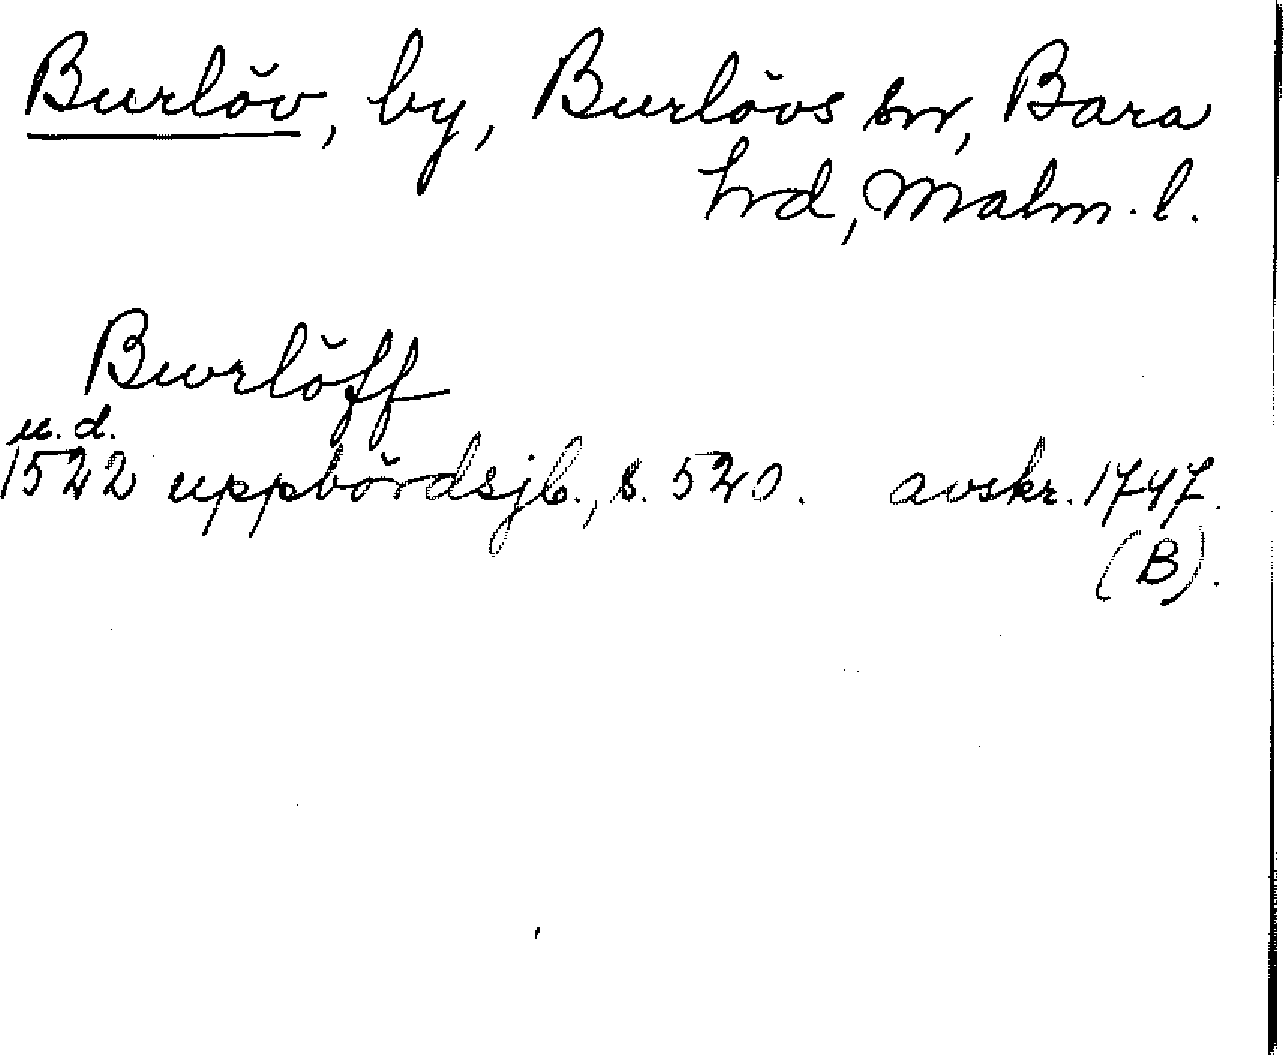 Burlöv, by, Burlövs sn, Bara
hrd, Malm. l.
Burlöff
u. d.
1522 uppbördsjb., s. 520. avskr. 1747.
(B).